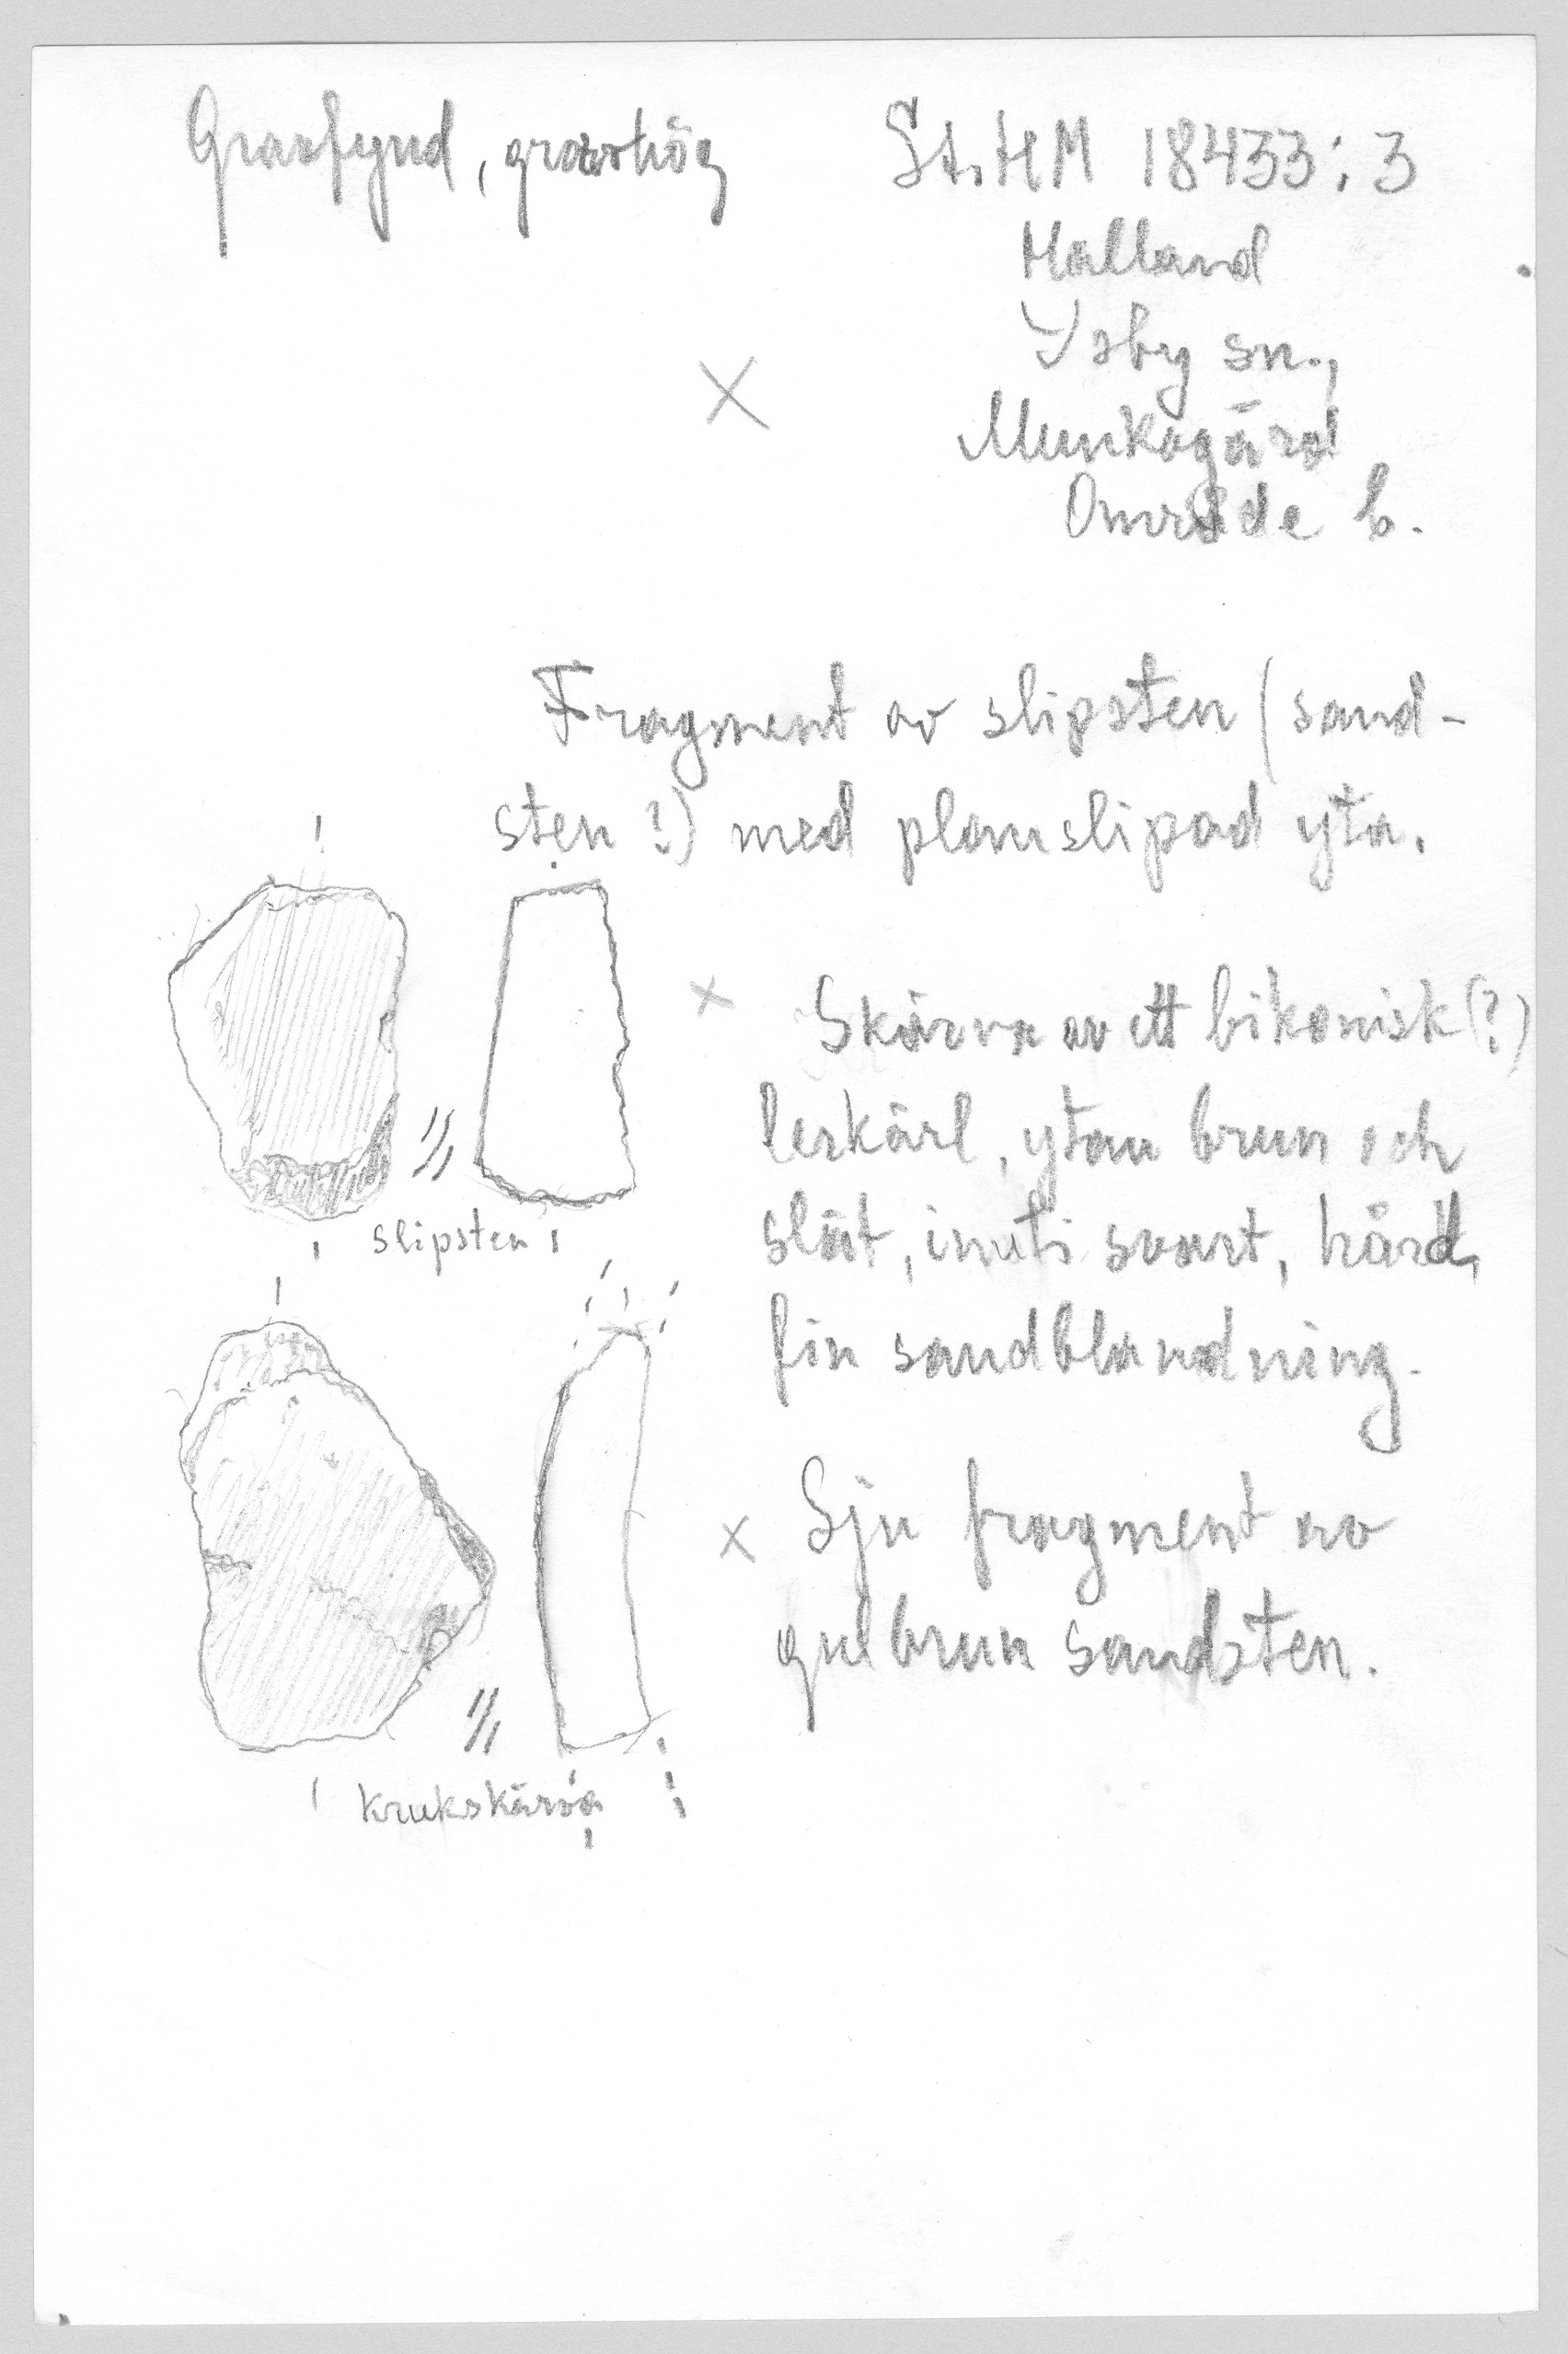 Gravfynd, gravhög
St. HM 18433:3
Halland
Ysby sn.,
Munkagård
Område b.
Fragment av slipsten (sand-
sten?) med planslipad yta.
Skärva av ett bikonisk(?)
lerkärl, ytan brun och
slät, inuti svart, hård,
fin sandblandning.
Sju fragment av
gulbrun sandsten.
slipsten
krukskärva